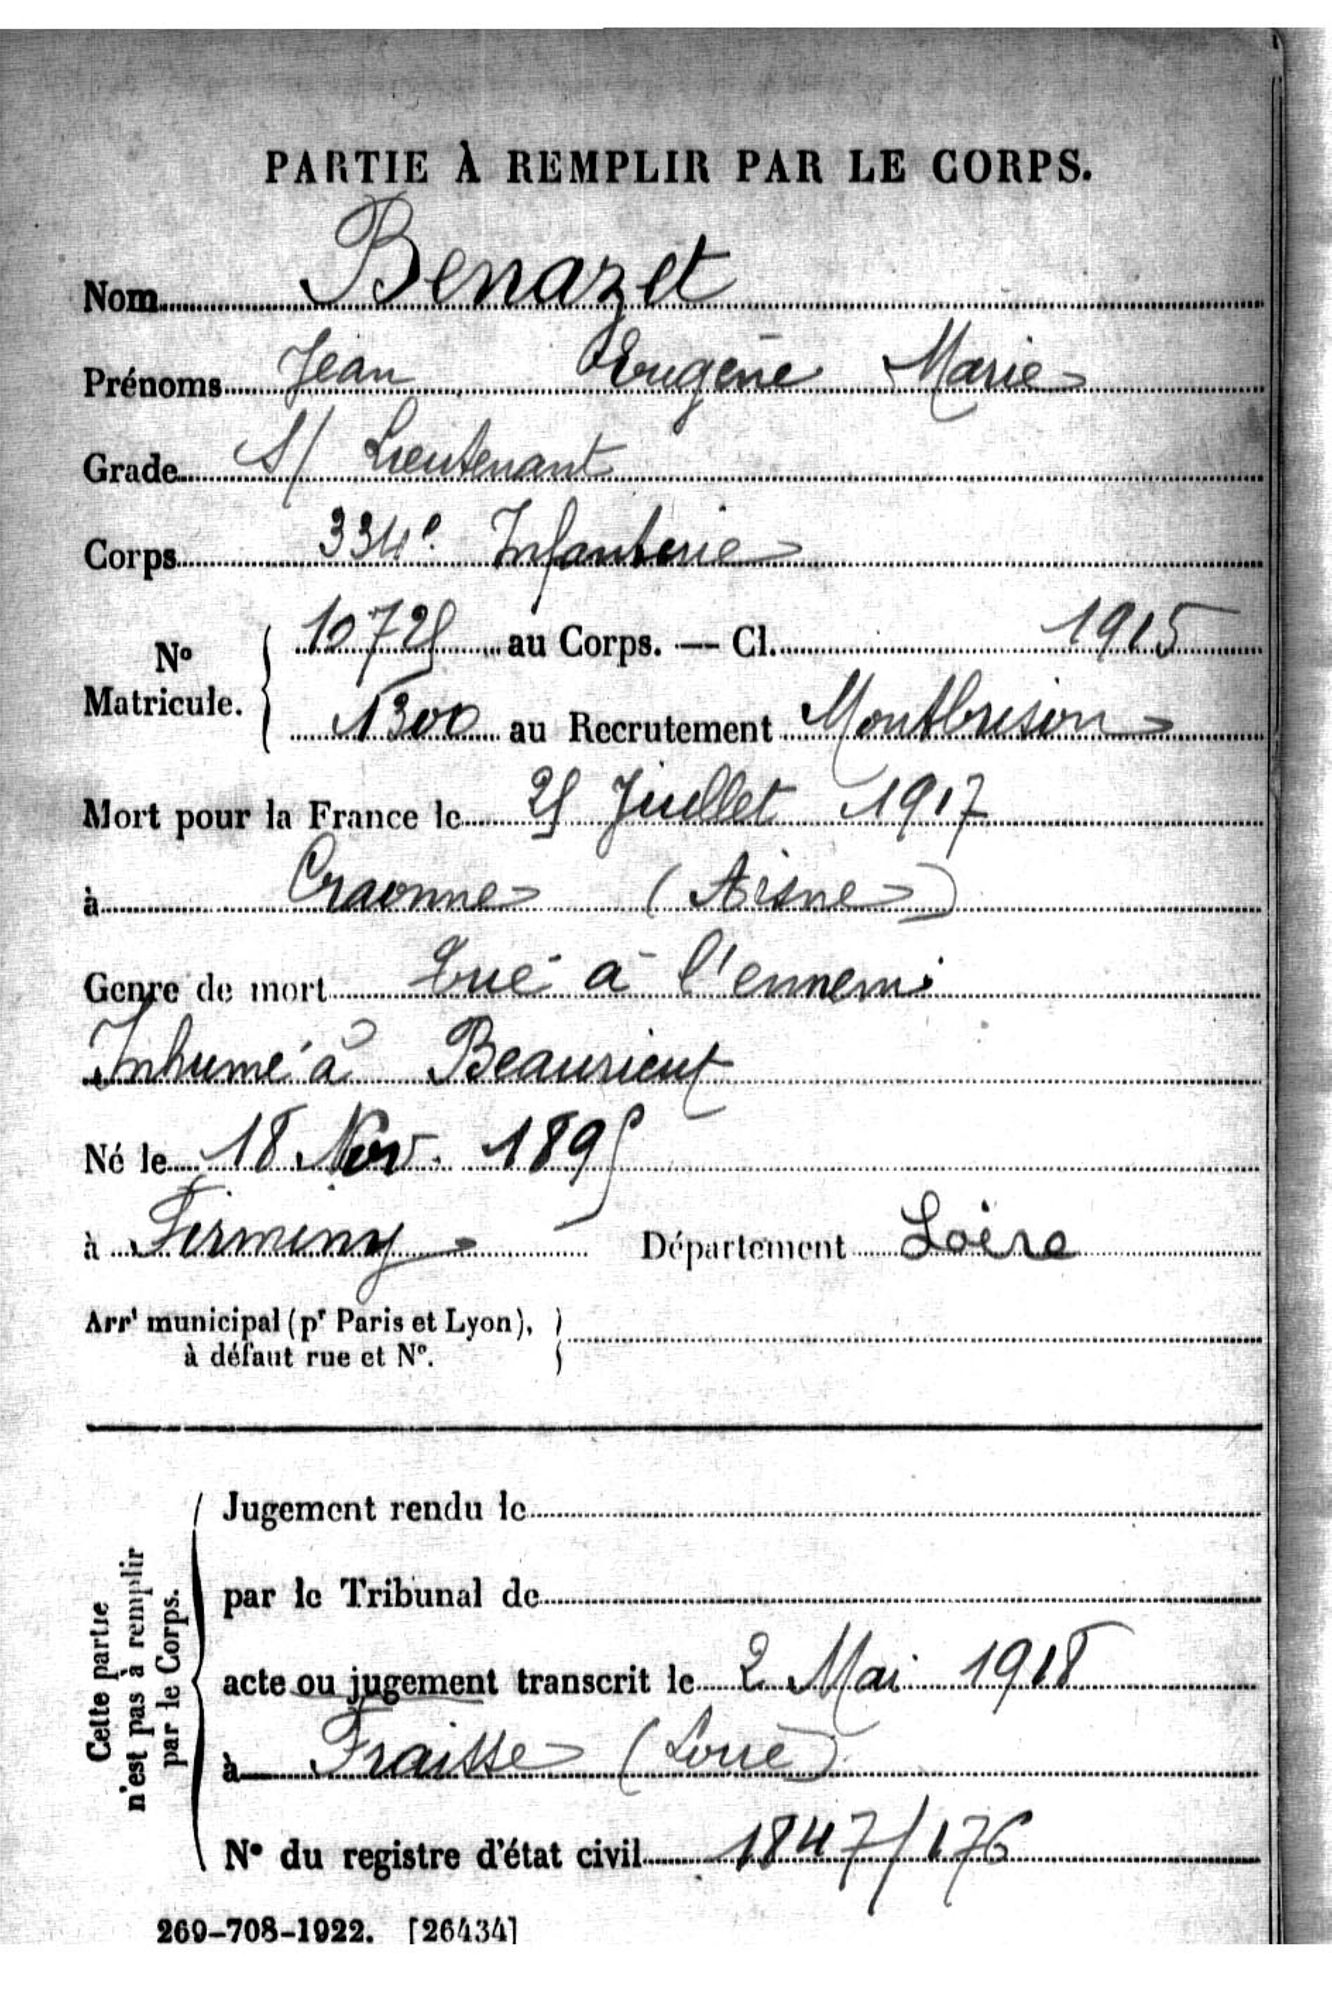 PARTIE À REMPLIR PAR LE CORPS.
Nom Benazet
Prénoms Jean Eugène Marie
Grade S/ Lieutenant
Corps 334e Infanterie
No Matricule. 10725 au Corps. — Cl. 1915
1300 au Recrutement Montbrison
Mort pour la France le 25 Juillet 1917
à Craonne (Aisne)
Genre de mort Tué à l'ennemi
Inhumé à Beaurieux
Né le 18 Nov. 1895
à Firminy Département Loire
Arrt municipal (pr Paris et Lyon),
à défaut rue et No.
Cette partie
n'est pas à remplir
par le Corps.
Jugement rendu le
par le Tribunal de
acte ou jugement transcrit le 2 Mai 1918
à Fraisse (Loire)
No du registre d'état civil 1847/176
269-708-1922. [26434]